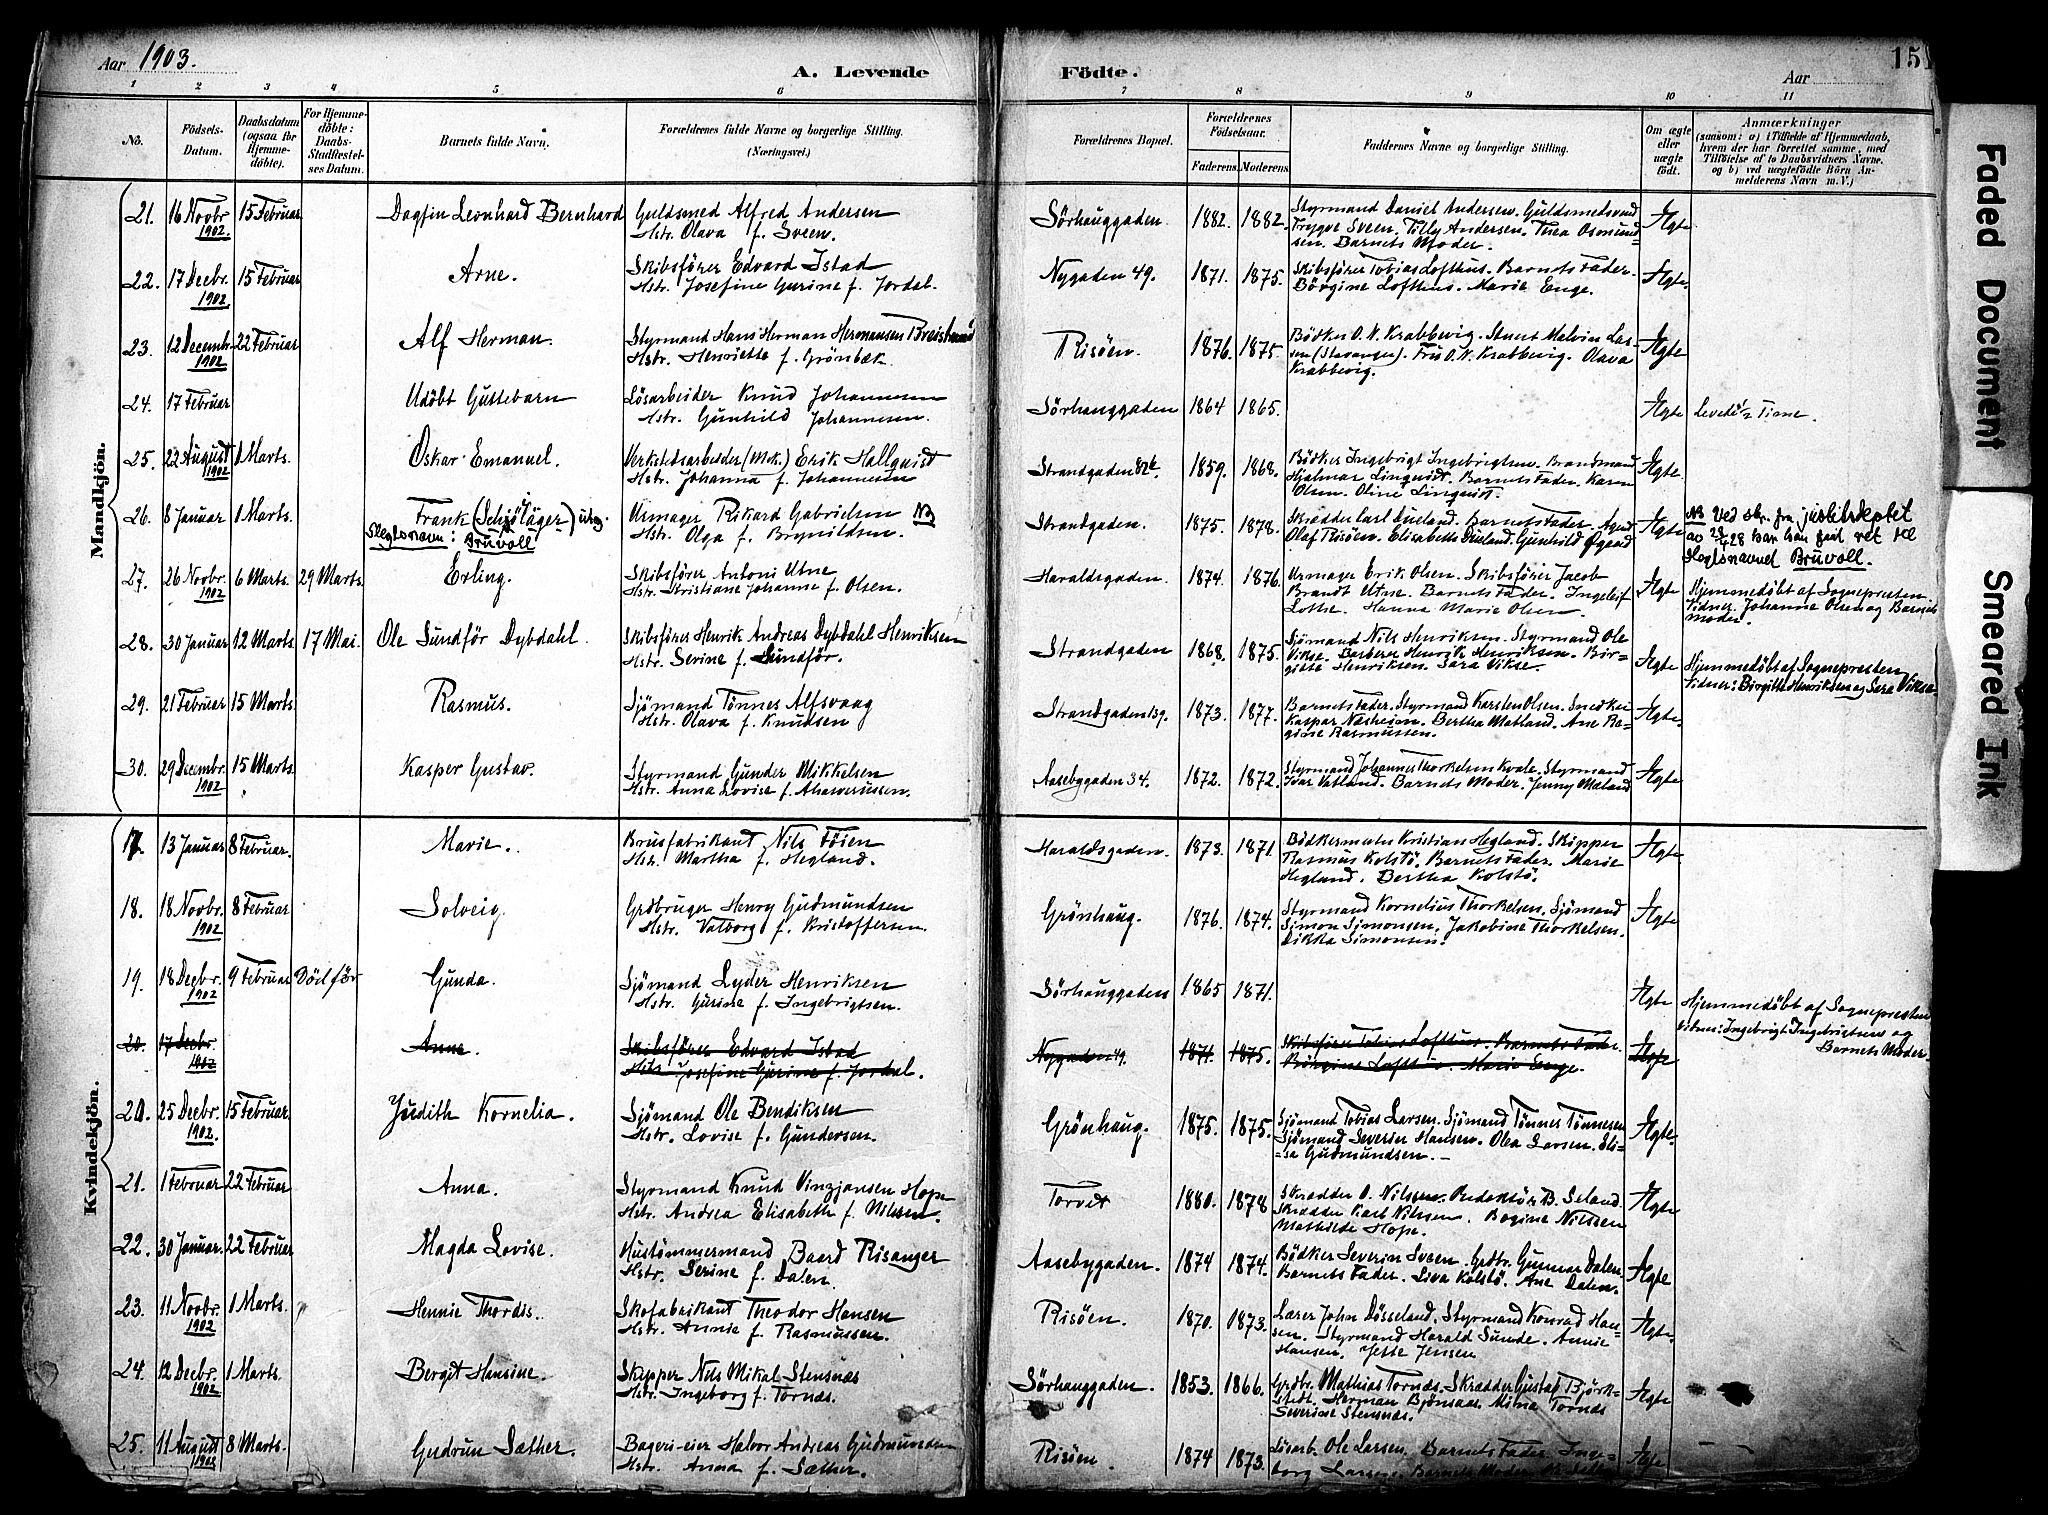 Aar 1903.
A. Levende Födte.
Aar
151
1 2 3 4 5 6 7 8 9 10 11
No.
Födsels-Datum.
Daabsdatum (ogsaa for Hjemmedöbte).
For Hjemmedöbte: Daabs-Stadfæstelses Datum.
Barnets fulde Navn.
Forældrenes fulde Navne og borgerlige Stilling.
(Næringsvei.)
Forældrenes Bopæl.
Forældrenes Födselsaar.
Faderens. Moderens.
Faddernes Navne og borgerlige Stilling.
Om ægte eller uægte födt.
Anmærkninger
(saasom: a) i Tilfælde af Hjemmedaab,
hvem der har forrettet samme, med
Tilföielse af to Daabsvidners Navne.
og b) ved uægtefödte Börn Anmelderens Navn m. V.)
Mandkjön.
21. 16 Novbr. 1902. 15 Februar Dagfin Leonhard Bernhard Guldsmed Alfred Andersen
Hstr. Olava f. Sveen.
Sörhauggaden. 1882. 1882. Styrmand Daniel Andersen. Guldsmedsvend
Trygve Sveen. Tilly Andersen. Thea Osmund=
sen. Barnets Moder. Ægte
22. 17 Decbr. 1902 15 Februar Arne. Skibsförer Edvard Istad
Hstr. Josefine Gurine f. Jordal.
Nygaden 49. 1871. 1875. Skibsförer Tobias Lofthus. Barnets Fader.
Börgine Lofthus. Marie Enge. Ægte.
23. 12 Decemb. 1902 22 Februar Alf Herman. Styrmand Hans Herman Hermansen
Hstr. Henriette f. Grönbæk.
Risöen. 1876. 1875. Bödker O. N. Krabbevig. Stuert Malvin Lar-
sen (Stavanger). Fru O. N. Krabbevig. Olava
Krabbevig. Ægte
24. 17 Februar Udöbt Guttebarn Lösarbeider Knud Johannesen
Hstr. Gunhild Johannesen.
Sörhauggaden 1864 1865. Ægte Levede ½ Time.
25. 22 August 1902 1 Marts. Oskar Emanuel. Verkstedsarbeider (Mek.) Erik Hallquist
Hstr. Johanna f. Johannesen
Strandgaden 1859. 1868. Bödker Ingebrigt Ingebrigtsen. Brandmand
Hjalmar Linqvist. Barnets Fader. Karen
Olsen. Oline Linqvist. Ægte.
26. 8 Januar 1 Marts. Frank
Slegtsnavn: Bruvoll
Urmager Rikard Gabrielsen NB
Hstr. Olga f. Brynildsen.
Strandgaden. 1875. 1878. Skrædder Carl Lueland. Barnets Fader.
Olaf Risöen. Elisabeth Lueland. Gunhild Ægte
NB Ved skr. fra justitsdeptet
har han
slegtsnavnet Bruvoll.
27. 26 Novbr. 1902 6 Marts. 29 Marts. Erling. Skibsförer Antoni Utne
Hstr. Kristiane Johanne f. Olsen.
Haraldsgaden. 1874. 1876. Urmager Erik Olsen. Skibsförer Jacob
Brandt Utne. Barnets Fader. Ingeleif
Lothe. Hanna Marie Olsen. Ægte
Hjemmedöbt af Sognepresten
Vidner: Johanne Olsen og Barnets
Moder.
28. 30 Januar 12 Marts. 17 Mai. Ole Sundför Dybdahl. Skibsförer Henrik Andreas Dybdahl Henriksen
Hstr. Serine f. Sundför.
Strandgaden 1868. 1875. Sjömand Nils Henriksen. Styrmand Ole
Vikse. Barberer Henrik Henriksen. Bir=
gitte Henriksen. Sara Vikse. Ægte
Hjemmedöbt af Sognepresten
Vidner: Birgitte Henriksen og Sara Vikse.
29. 21 Februar 15 Marts. Rasmus. Sjömand Tönnes Alfsvaag
Hstr. Olava f. Knudsen
Strandgaden 139. 1873. 1877. Barnets Fader. Styrmand Karsten Olsen. Snedker
Kaspar Næsheim. Bertha Matland. Ane Ra-
gine Rasmussen. Ægte.
30. 29 Decembr. 1902 15 Marts. Kasper Gustav. Styrmand Gunder Mikkelsen
Hstr. Anna Lovise f. Ahasveriussen.
Aasebygaden 34. 1872. 1872. Styrmand Johannes Thorkelsen Kvale. Styrmand
Ivar Vatland. Barnets Moder. Jenny Maland Ægte
Kvindekjön.
17. 13 Januar 8 Februar. Marie. Brusfabrikant Nils Töien
Hstr. Martha f. Hegland.
Haraldsgaden. 1873. 1871. Bödkermester Kristian Hegland. Skipper
Rasmus Kolstö. Barnets Fader. Marie
Hegland. Bertha Kolstö. Ægte
18. 18 Novbr. 1902 8 Februar Solveig. Grdbruger Henry Gudmundsen
Hstr. Valborg f. Kristoffersen.
Grönhaug. 1876. 1874. Styrmand Kornelius Thorkelsen. Sjömand
Simon Simonsen. Jakobine Thorkelsen.
Dikka Simonsen. Ægte
19. 18 Decbr. 1902 9 Februar Död för Gunda. Sjömand Lyder Henriksen
Hstr. Gurine f. Ingebrigtsen.
Sörhauggaden 1865 1871. Ægte
Hjemmedöbt af Sognepresten
Vidner: Ingebrigt Ingebrigtsen og
Barnets Moder.
20. 17 Decbr. 1902 Anne. Skibsförer Edvard Istad
Hstr. Josefine Gurine f. Jordal.
Nygaden 49. 1871. 1875. Skibsförer Tobias Lofthus. Barnets Fader.
Börgine Lofthus. Marie Enge. Ægte
20. 25 Decbr. 1902. 15 Februar. Judith Kornelia. Sjömand Ole Bendiksen
Hstr. Lovise f. Gundersen.
Grönhaug. 1875. 1875. Sjömand Tobias Larsen. Sjömand Tönnes Tönnesen
Sjömand Severin Hansen. Olea Larsen. Eli=
=sa Gudmundsen. Ægte.
21. 1 Februar 22 Februar Anna. Styrmand Knud Vinzjansen Hope
Hstr. Andrea Elisabeth f. Nilssen.
Torvet 1880. 1878 Skrædder O. Nilssen. Redaktör B. Seland.
Skrædder Karl Nilssen. Bogine Nilssen
Mathilde Hope. Ægte
22. 30 Januar. 22 Februar Magda Lovise. Hustömmermand Baard Risanger
Hstr. Serine f. Dalen.
Aasebygaden. 1874 1874. Bödker Severin Sveen. Grdbr. Gunnar Dalen.
Barnets Fader. Liva Kolstö. Ane Dalen. Ægte
23. 11 Novbr. 1902 1 Marts. Hennie Thordis. Skofabrikant Theodor Hansen
Hstr. Annie f. Rasmussen.
Risöen. 1870. 1873. Lærer John Dösseland. Styrmand Konrad Han-
sen. Styrmand Harald Sunde. Annie
Hansen. Jette Jensen Ægte.
24. 12 Decbr. 1902 1 Marts. Bergit Hansine. Skipper Nils Mikal Stensnæs
Hstr. Ingeborg f. Tornæs.
Sörhauggaden. 1853. 1866. Grdbr. Mathias Tornæs. Skrædder Gustaf Björk-
stedt. Herman Bjönsaas. Mina Tornæs
Severine Stensnæs. Ægte
25. 11 August 1902 8 Marts. Gudrun Sæther. Bageri-eier Halvor Andreas Gudmundsen
Hstr. Anna f. Sæther.
Risöen. 1874 1873. Lösarb. Ole Larsen. Barnets Fader. Inge-
borg Larsen. Barnets Moder. Ægte
Faded Document
Smeared Ink